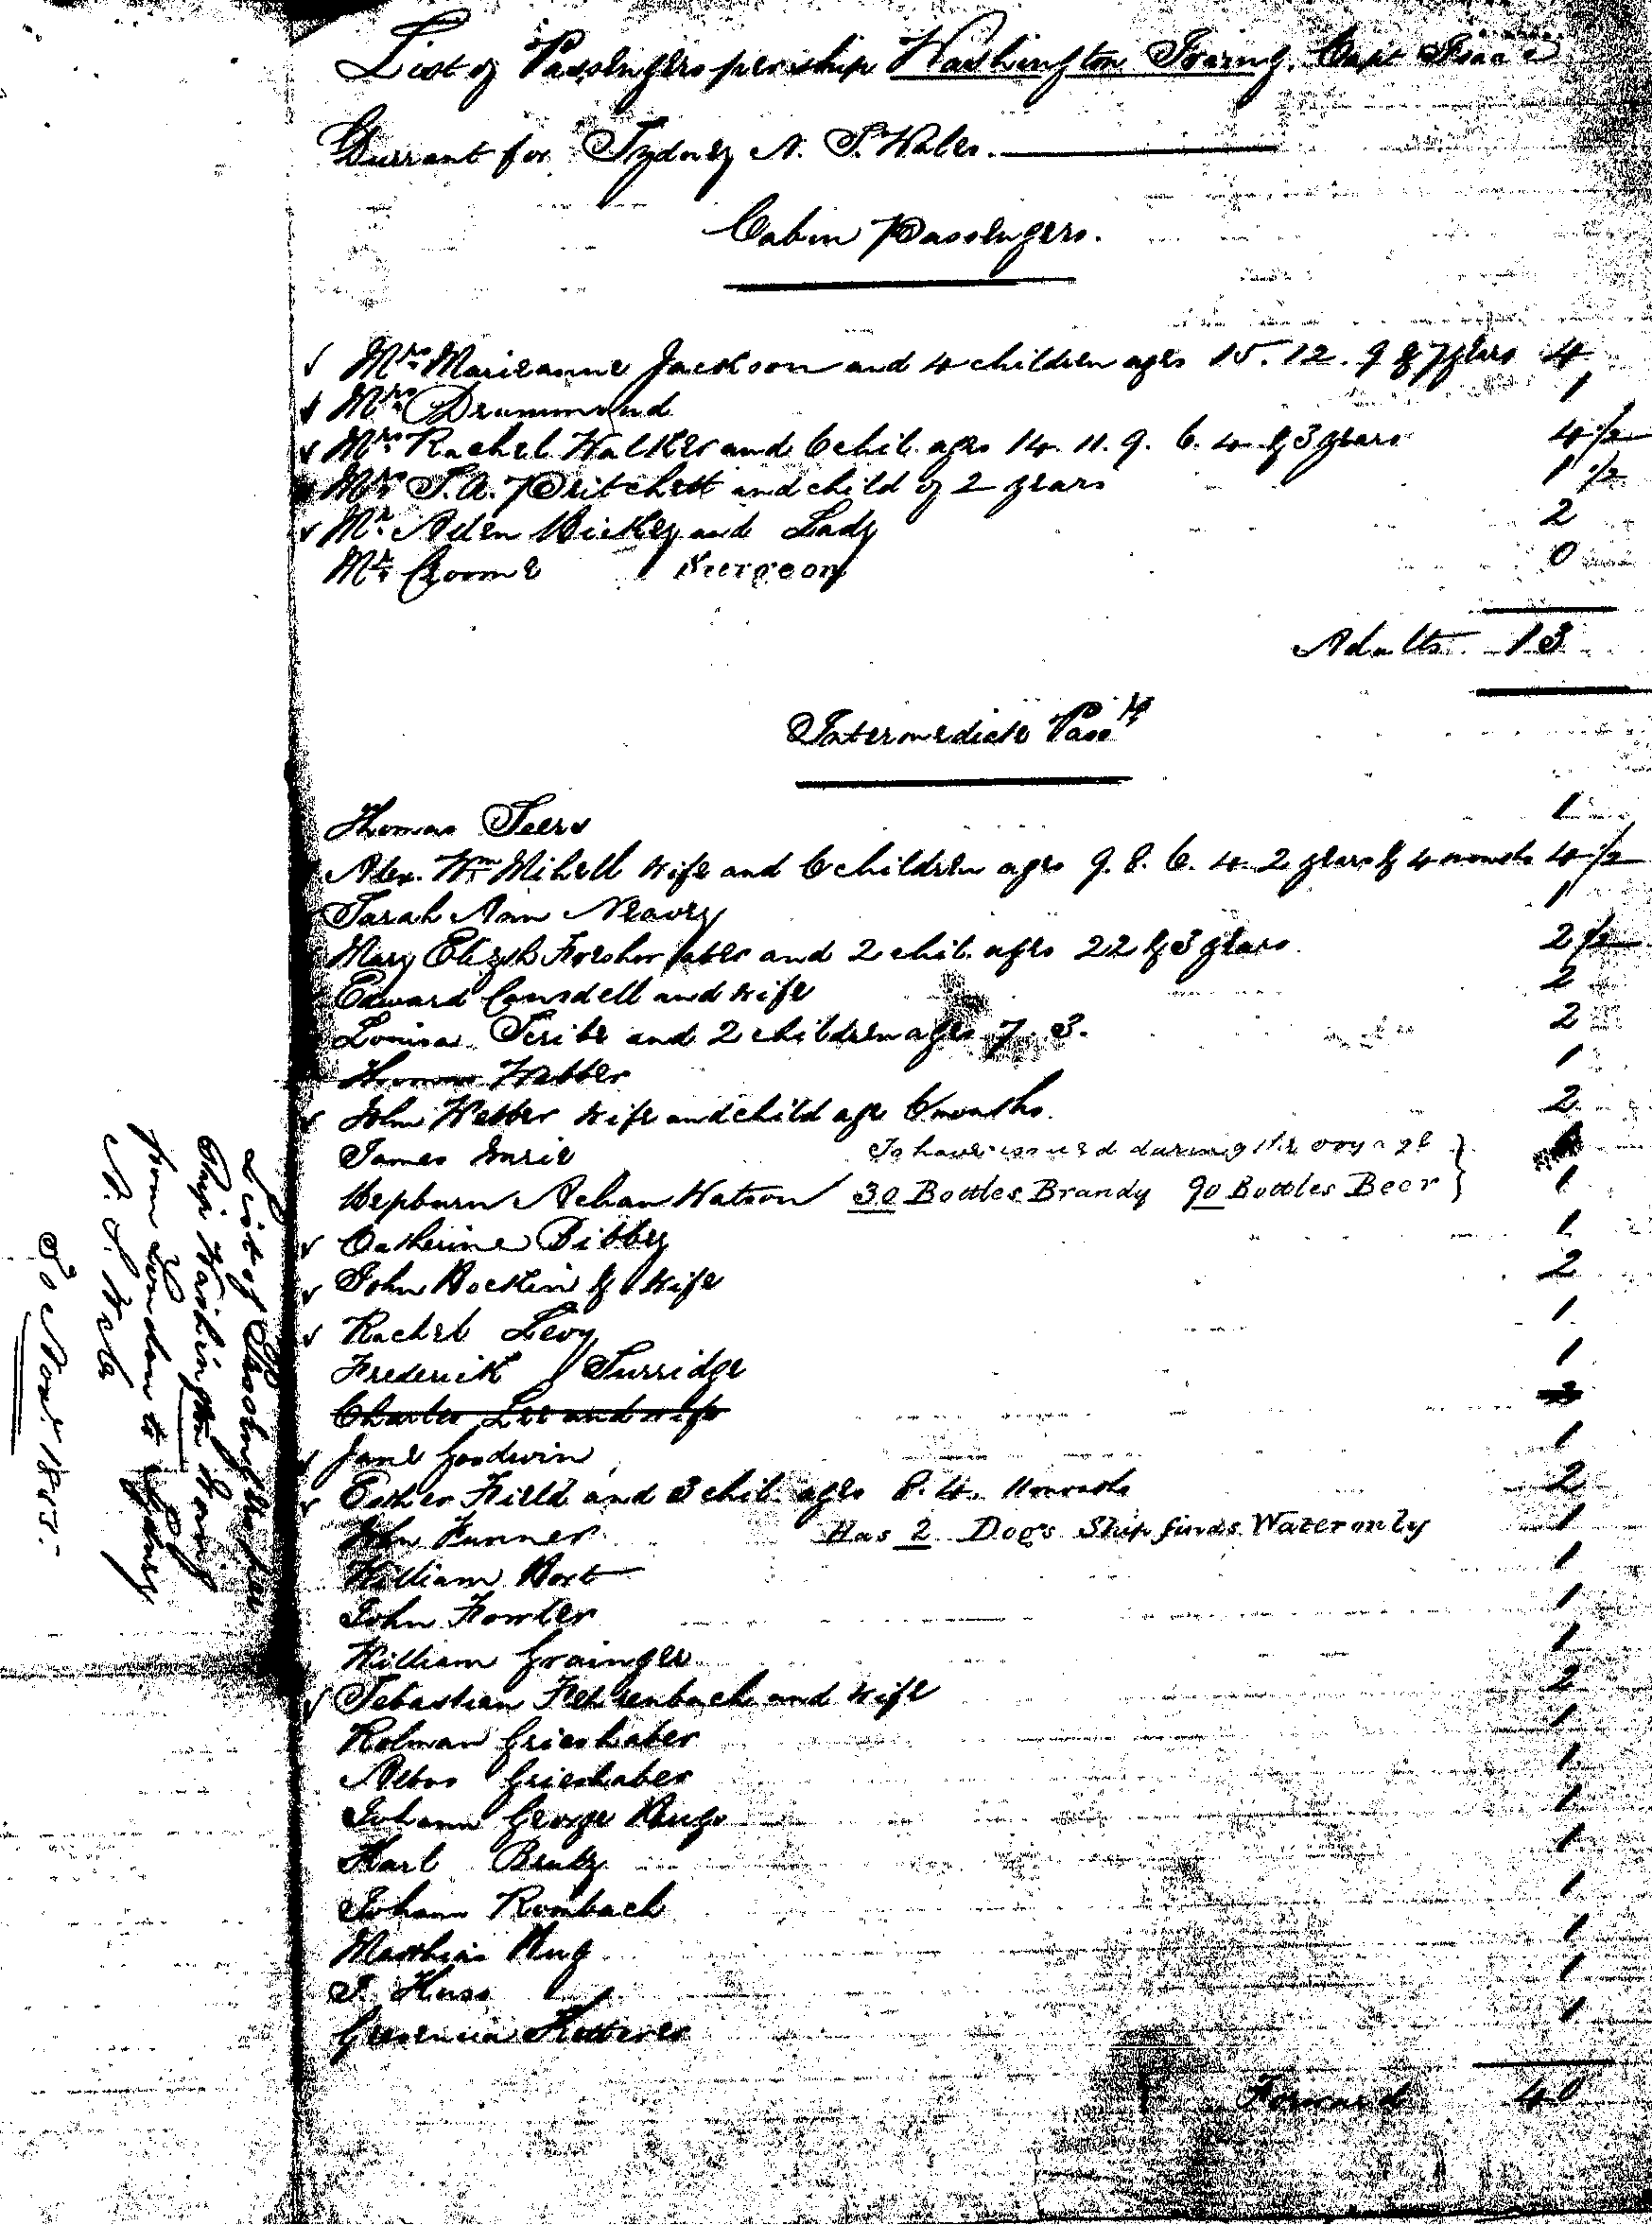 List of Passengers per ship Washington Irving. Capt Isaac
Durrant for Sydney N. S. Wales.
Cabin Passengers.
Mrs Marieanne Jackson and 4 children ages 15. 12. 9 & 7 years 4
Mrs Drummond 1
Mrs Rachel Walker and 6 chil. ages 14. 11. 9. 6. 4 & 3 years 4 1/2
Mrs S. A. Pritchett and child of 2 years 1 1/2
Mr Aden Hickey and Lady 2
Mr Croome Surgeon 0
Adults 13
Intermediate Pass
Thomas Seers 1
Alex. Wm Mihell wife and 6 children ages 9. 8. 6. 4. 2 years & 4 months 4 1/2
Sarah Ann Neavey 1
Mary Elizth and 2 chil. ages 22 & 3 years. 2 1/2
Edward Consdell and wife 2
Louisa Scribe and 2 children ages 7. 3. 2
Webber 1
John Webber wife and child age 6 months. 2
James Imrie To have issued during the voyage
Hepburn Achan Watson 30 Bottles Brandy 90 Bottles Beer 1
Catherine Bibby 1
John Hocklin & wife 2
Rachel Levy 1
Frederick Surridge 1
Charles Lee and wife 2
Jane Goodwin 1
Esther Field and 3 chil. ages 8. 4. 11 months 2
John Funner Has 2 Dogs Ship finds Water only 1
William Hort 1
John Fowler 1
William Grainger 1
Sebastian Fehrenbach and wife 2
Roman Grieshaber 1
Albus Grieshaber 1
Johann George Hugo 1
Karl Brutz 1
Johann Rombach 1
Matthias Hug 1
J. Huss 1
Ketterer 1
Forward 40
List of Passengers per
Ship Washington Irving
from London to Sydney
N. S. Wales